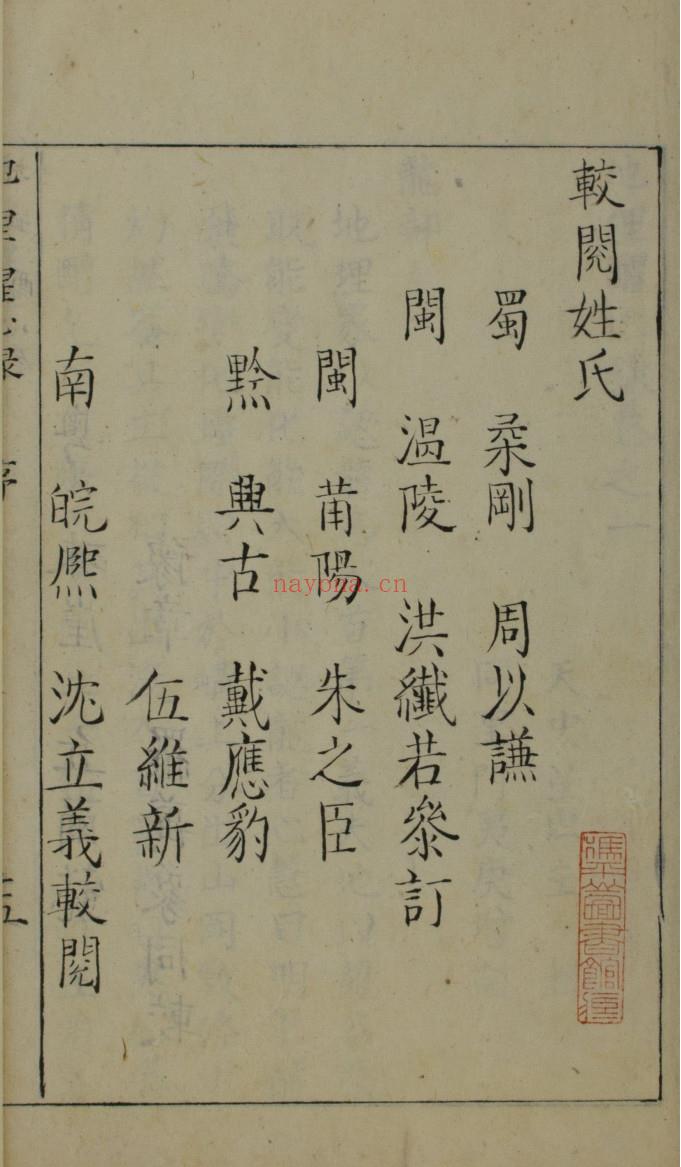 較閱姓氏
蜀 桒剛 周以謙
閩 温陵 洪纎若叅訂
閩 莆陽 朱之臣
黔 興古 戴應豹
伍維新
南 皖熈 沈立義較閱
序
五
nayona.cn